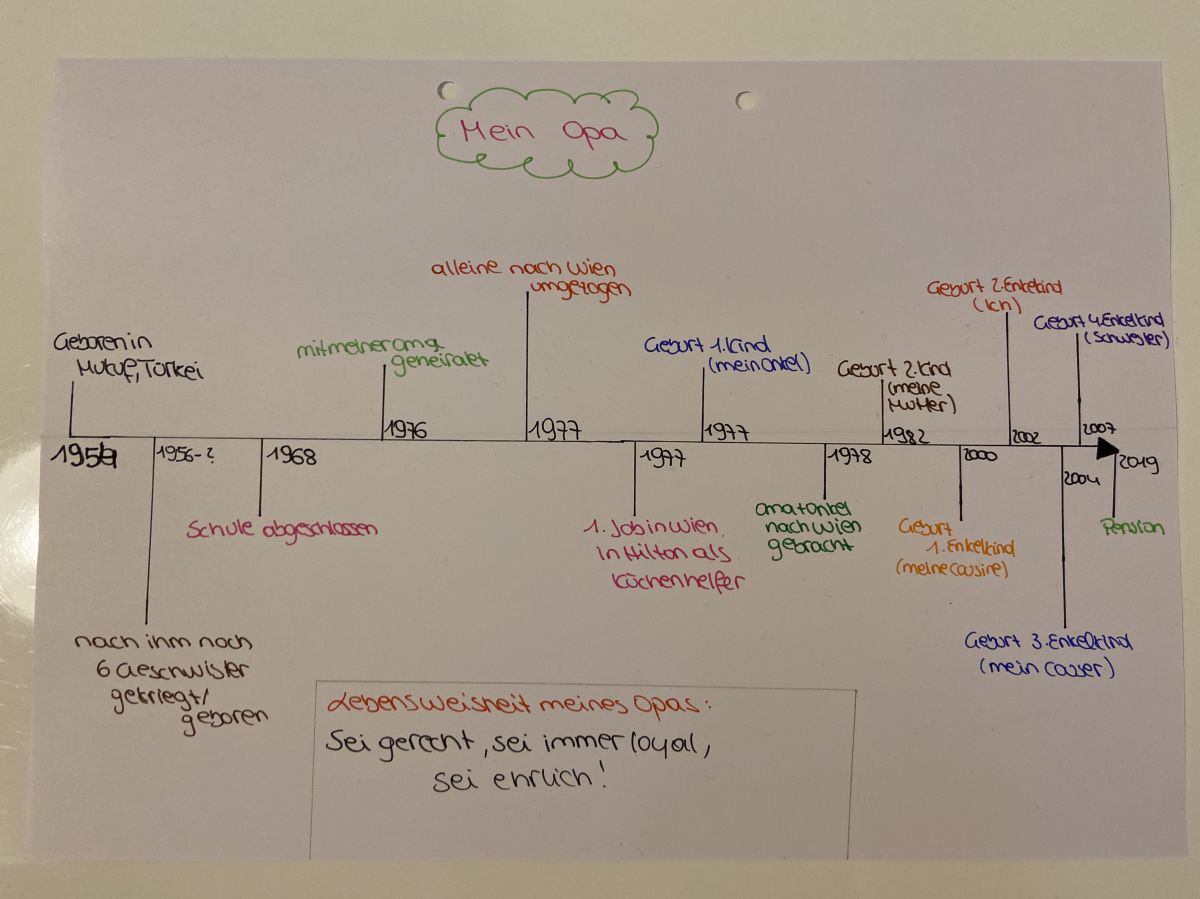 Mein Opa
alleine nach Wien
umgezogen
Geboren in
Mutuf, Türkei
mit meiner oma
geheiratet
Geburt 1. Kind
(mein onkel)
Geburt 2. Kind
(meine
Mutter)
Geburt 2. Enkelkind
(Ich)
Geburt 4. Enkelkind
(Schwester)
1954
1956-?
1968
1976
1977
1977
1977
1978
1982
2000
2002
2004
2007
2019
Schule abgeschlossen
1. Job in Wien,
in Hilton als
Küchenhelfer
oma + onkel
nach wien
gebracht
Geburt
1. Enkelkind
(meine Cousine)
Pension
nach ihm noch
6 Geschwister
gekriegt/
geboren
Geburt 3. Enkelkind
(mein Couser)
Lebensweisheit meines Opas:
Sei gerecht, sei immer loyal,
sei ehrlich!